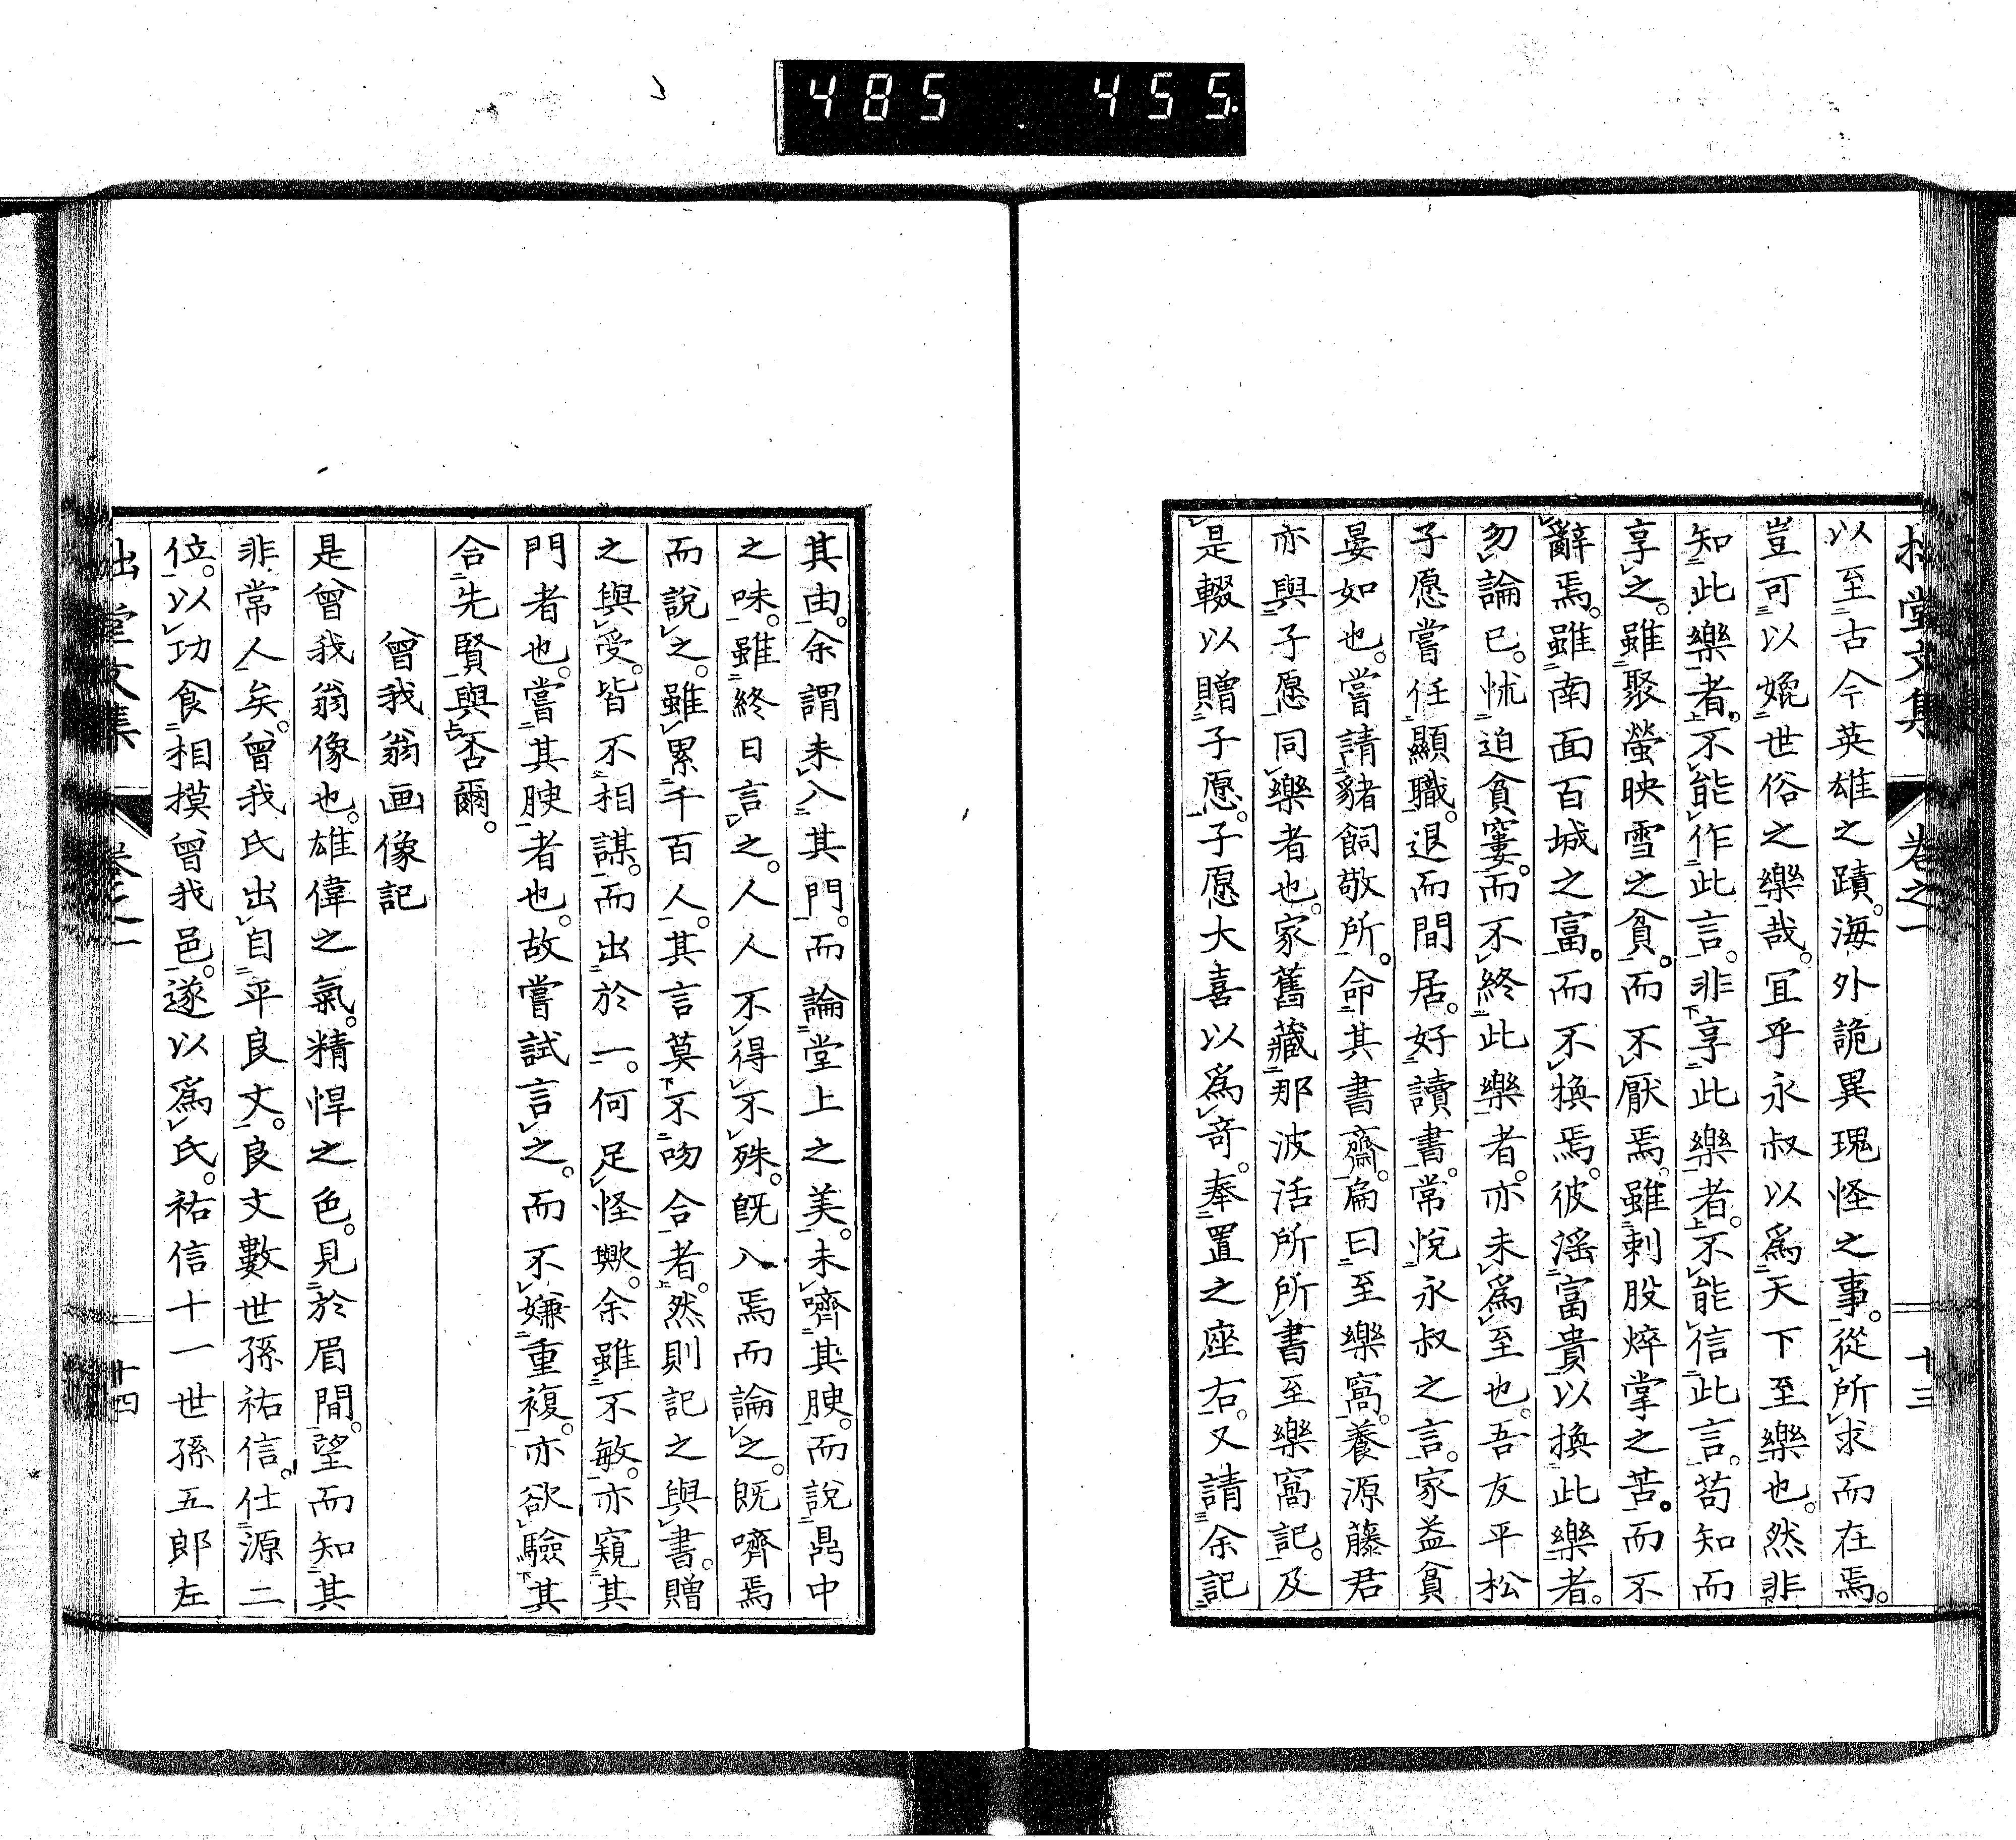 485 455
拙堂文集 卷之一 十三
以至古今英雄之蹟。海外詭異瑰怪之事。從所求而在焉。
豈可以娩世俗之樂哉。宜乎永叔以爲天下至樂也。然非
知此樂者。不能作此言。非享此樂者。不能信此言。苟知而
享之。雖聚螢映雪之貧。而不厭焉。雖刺股焠掌之苦。而不
辭焉。雖南面百城之富。而不換焉。彼滛富貴以換此樂者。
勿論已。怵迫貧窶。而不終此樂者。亦未爲至也。吾友平松
子愿嘗任顯職。退而間居。好讀書。常悅永叔之言。家益貧
晏如也。嘗請豬飼敬所。命其書齋。扁曰至樂窩。養源藤君
亦與子愿同樂者也。家舊藏那波活所所書至樂窩記。及
是輟以贈子愿。子愿大喜以爲奇。奉置之座右。又請余記
其由。余謂未入其門。而論堂上之美。未嚌其腴。而說鼎中
之味。雖終日言之。人人不得不殊。既入焉而論之。既嚌焉
而說之。雖累千百人。其言莫不吻合者。然則記之與書。贈
之與受。皆不相謀。而出於一。何足怪歟。余雖不敏。亦窺其
門者也。嘗其腴者也。故嘗試言之。而不嫌重複。亦欲驗其
合先賢與否爾。
曾我翁画像記
是曾我翁像也。雄偉之氣。精悍之色。見於眉間。望而知其
非常人矣。曾我氏出自平良文。良文數世孫祐信。仕源二
位。以功食相摸曾我邑。遂以爲氏。祐信十一世孫五郎左
拙堂文集 卷之一 十四